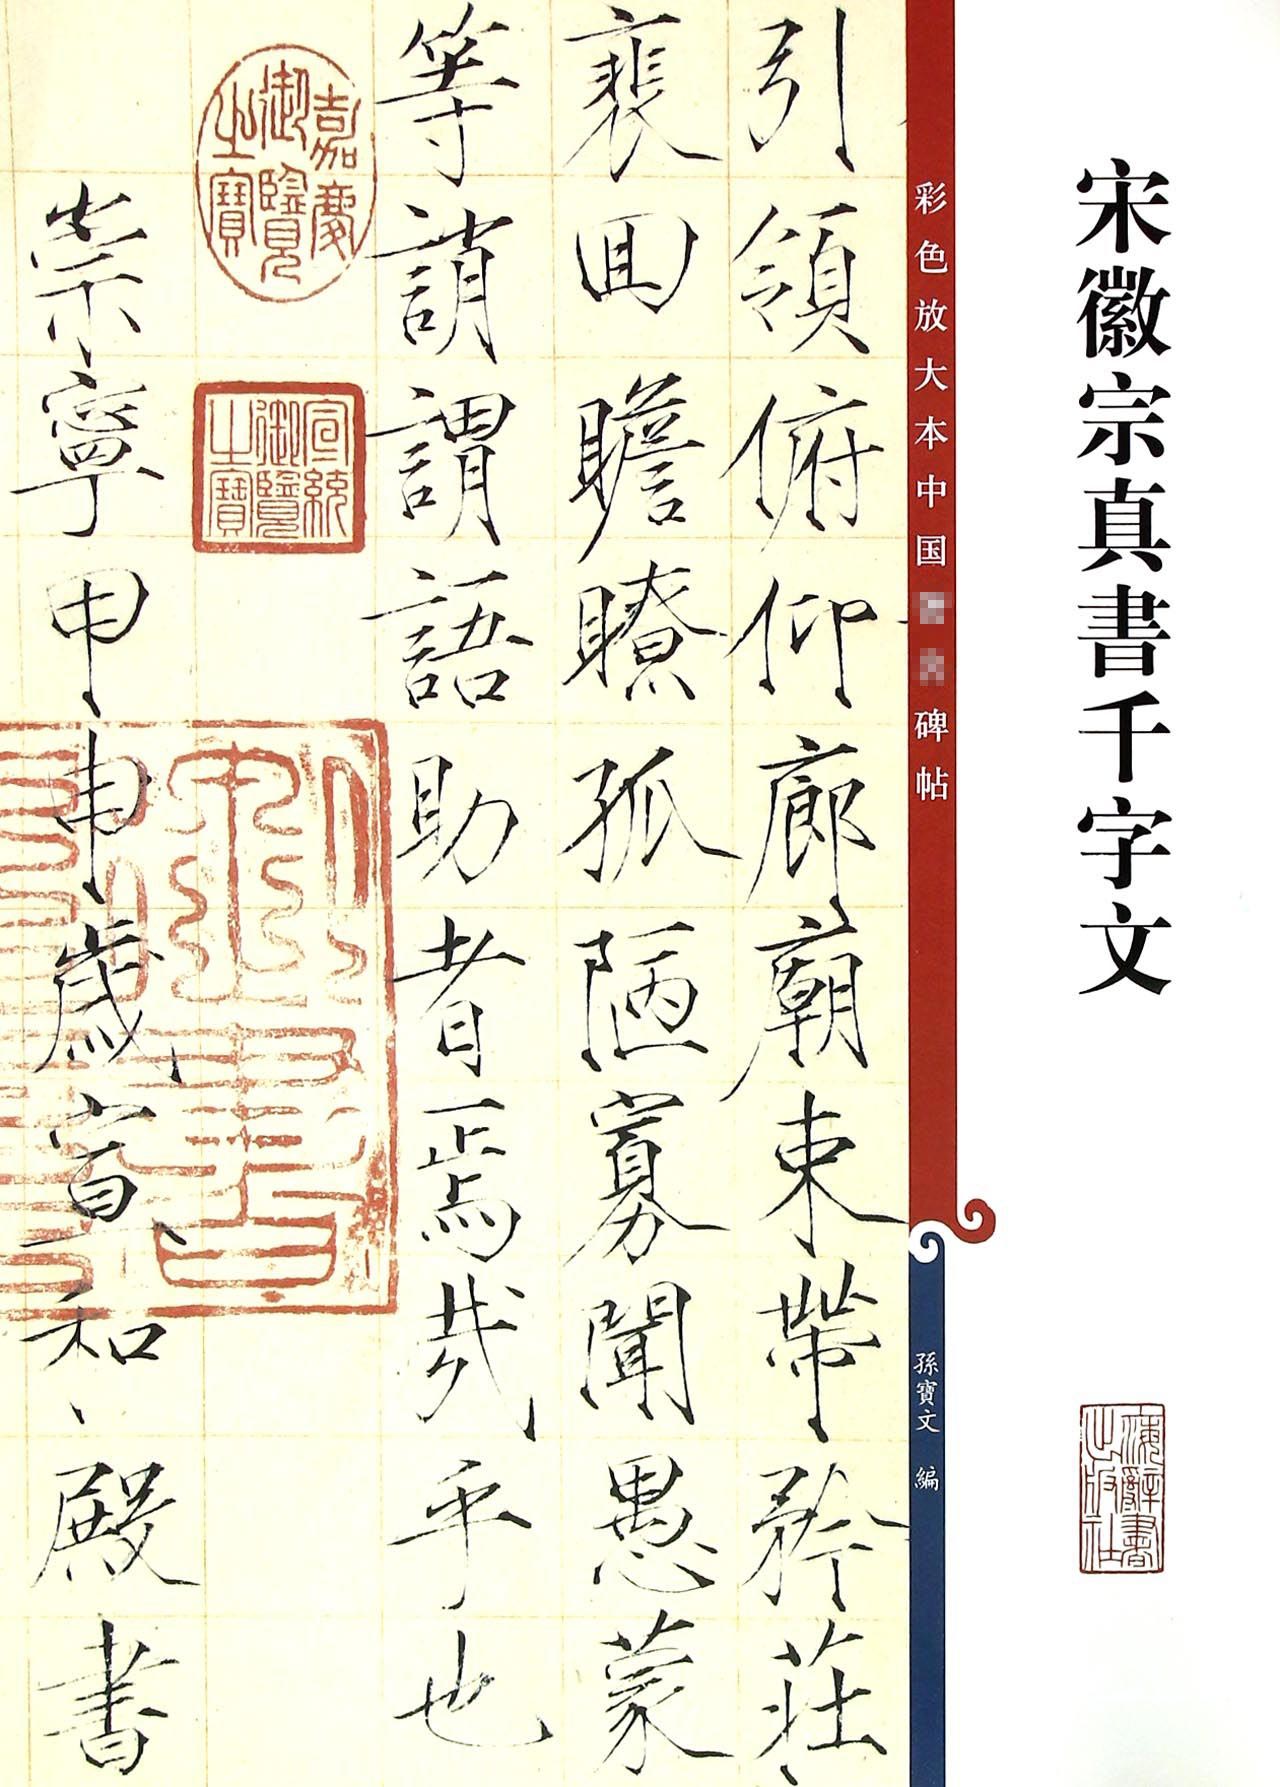 宋徽宗真書千字文
上海辭書出版社
彩色放大本中国
碑帖
孫寶文 編
引領俯仰廊廟束帶矜莊
裵囬瞻瞭孤陋寡聞愚蒙
等誚謂語助者焉哉乎也
嘉慶御覽之寶
宣統御覽之寶
崇寧甲申歲宣和殿書